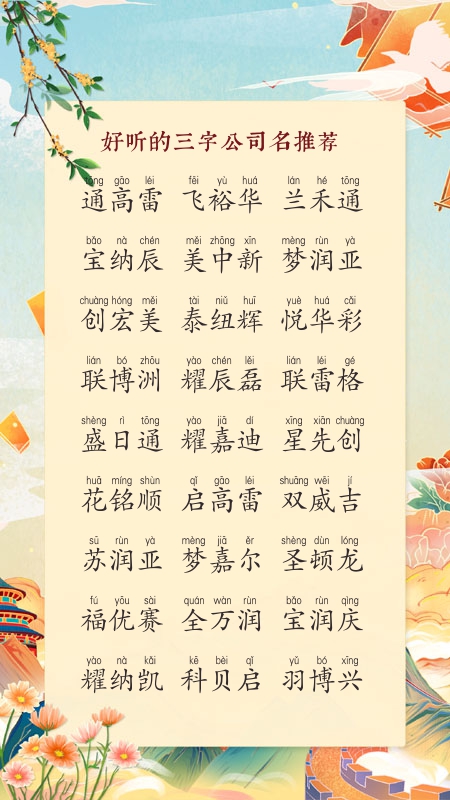 好听的三字公司名推荐
tōng gāo léi fēi yù huá lán hé tōng
通高雷 飞裕华 兰禾通
bǎo nà chén měi zhōng xīn mèng rùn yà
宝纳辰 美中新 梦润亚
chuàng hóng měi tài niǔ huī yuè huá cǎi
创宏美 泰纽辉 悦华彩
lián bó zhōu yào chén lěi lián léi gé
联博洲 耀辰磊 联雷格
shèng rì tōng yào jiā dí xīng xiān chuàng
盛日通 耀嘉迪 星先创
huā míng shùn qǐ gāo léi shuāng wēi jí
花铭顺 启高雷 双威吉
sū rùn yà mèng jiā ěr shèng dùn lóng
苏润亚 梦嘉尔 圣顿龙
fú yōu sài quán wàn rùn bǎo rùn qìng
福优赛 全万润 宝润庆
yào nà kǎi kē bèi qǐ yǔ bó xīng
耀纳凯 科贝启 羽博兴